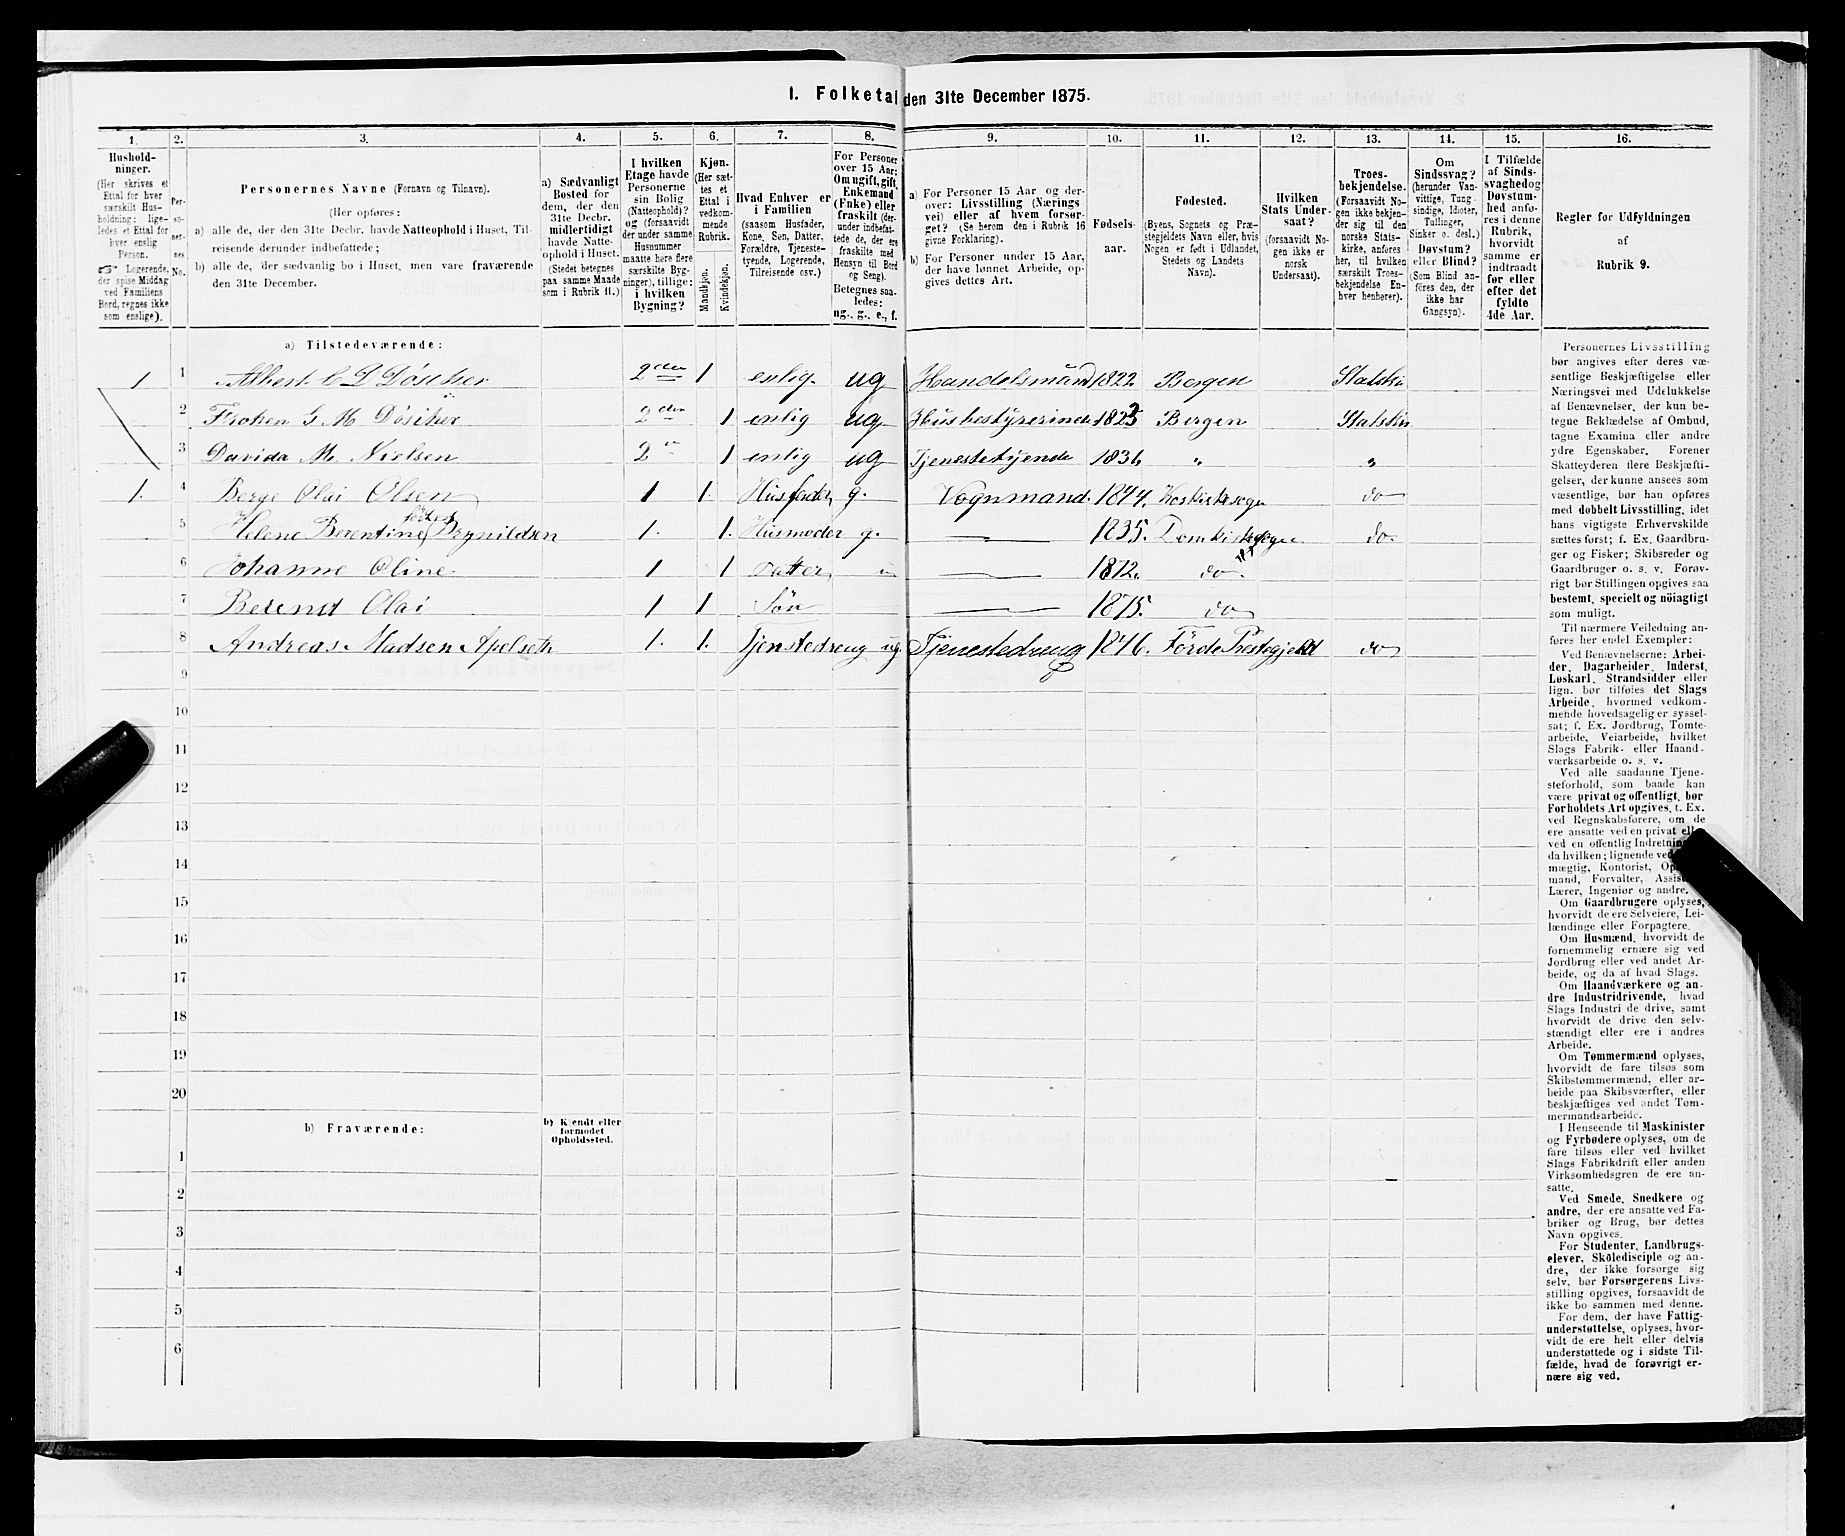 1. Folketal den 31te December 1875.
1. 2. 3. 4. 5. 6. 7. 8. 9. 10. 11. 12. 13. 14. 15. 16.
Hushold-
ninger.
(Her skrives et
Ettal for hver
særskilt Hus-
holdning; lige-
ledes et Ettal for
hver enslig
Person.
☞ Logerende,
der spise Middag
ved Familiens
Bord, regnes ikke
som enslige).
Per-
so-
ner-
nes
No.
Personernes Navne (Fornavn og Tilnavn).
(Her opføres:
a) alle de, der den 31te Decbr. havde Natteophold i Huset, Til-
reisende derunder indbefattede;
b) alle de, der sædvanlig bo i Huset, men vare fraværende
den 31te December.
a) Sædvanligt
Bosted for
dem, der den
31te Decbr.
midlertidigt
havde Natte-
ophold i Huset.
(Stedet betegnes
paa samme Maade
som i Rubrik 11.)
I hvilken
Etage havde
Personerne
sin Bolig
(Natteophold)?
og (forsaavidt
der under samme
Husnummer
maatte høre flere
særskilte Byg-
ninger), tillige:
i hvilken
Bygning?
Kjøn.
(Her sæt-
tes et
Ettal i
vedkom-
mende
Rubrik.
Mandkjøn.
Kvindekjøn.
Hvad Enhver er
i Familien
(saasom Husfader,
Kone, Søn, Datter,
Forældre, Tjeneste-
tyende, Logerende,
Tilreisende osv.)
For Personer
over 15 Aar:
Om ugift, gift,
Enkemand
(Enke) eller
fraskilt (der-
under indbefat-
tede de, der ere
fraskilte med
Hensyn til Bord
og Seng).
Betegnes saa-
ledes:
ug., g., e., f.
a) For Personer 15 Aar og der-
over: Livsstilling (Nærings
vei) eller af hvem forsør-
get? (Se herom den i Rubrik 16
givne Forklaring).
b) For Personer under 15 Aar,
der have lønnet Arbeide, op-
gives dettes Art.
Fødsels-
aar.
Fødested.
(Byens, Sognets og Præ-
stegjeldets Navn eller, hvis
Nogen er født i Udlandet,
Stedets og Landets
Navn).
Hvilken
Stats Under-
saat?
(forsaavidt No-
gen ikke er
norsk
Undersaat).
Troes-
bekjendelse.
(Forsaavidt No-
gen ikke bekjen-
der sig til den
norske Stats-
kirke, anføres
her, til hvilken
særskilt Troes-
bekjendelse En-
hver henhører).
Om
Sindssvag?
(herunder Van-
vittige, Tung-
sindige, Idioter,
Tullinger,
Sinker o. desl.)
Døvstum?
eller Blind?
(Som Blind an-
föres den, der
ikke har
Gangsyn).
I Tilfælde
af Sinds-
svaghed og
Døvstum-
hed anfø-
res i denne
Rubrik,
hvorvidt
samme er
indtraadt
før eller
efter det
fyldte
4de Aar.
Regler for Udfyldningen
af
Rubrik 9.
a) Tilstedeværende:
1 1 Albert C D Döscher 2den 1 enlig ug Handelsmand 1822 Bergen Statskir
2 Frøken G M Döscher 2den 1 enlig ug Husbestyrerinde Bergen Statskir
3 Davida M. Nielsen 2 1 enlig ug Tjenestetyende 1836 " "
1. 4 Berge Olai Olsen 1 1. Husfader g. Vognmand. 1844. Korskirkesogn do
5 Helene Berentine födt Brynildsen 1. 1. Husmoder g. — 1835. Domkirkesogn do
6 Johanne Oline 1 1 Datter — 1872. do
7 Berend Olai 1 1 Sön — 1875. do
8 Andreas Madsen Apelseth 1. 1. Tjenstedreng ug. Tjenestedreng 1846. Förde Prestegjeld do
9
10
11
12
13
14
15
16
17
18
19
20
b) Fraværende:
b) Kjendt eller
formodet
Opholdssted.
1
2
3
4
5
6
Personernes Livsstilling
bør angives efter deres væ-
sentlige Beskjæftigelse eller
Næringsvei med Udelukkelse
af Benævnelser, der kun be-
tegne Beklædelse af Ombud,
tagne Examina eller andre
ydre Egenskaber. Forener
Skatteyderen flere Beskjæfti-
gelser, der kunne ansees som
væsentlige, bør han opføres
med dobbelt Livsstilling, idet
hans vigtigste Erhvervskilde
sættes først; f. Ex. Gaardbru-
ger og Fisker; Skibsreder og
Gaardbruger o. s. v. Forøv-
rigt bør Stillingen opgives saa
bestemt, specielt og nöiagtigt
som muligt.
Til nærmere Veiledning an-
føres her endel Exempler:
Ved Benævnelserne: Arbei-
der, Dagarbeider, Inderst,
Løskarl, Strandsidder eller
lign. bør tilføies det Slags
Arbeide, hvormed vedkom-
mende hovedsagelig er syssel-
sat; f. Ex. Jordbrug, Tomte-
arbeide, Veiarbeide, hvilket
Slags Fabrik- eller Haand-
værksarbeide o. s. v.
Ved alle saadanne Tjene-
steforhold, som baade kan
være privat og offentligt, bør
Forholdets Art opgives, t. Ex.
ved Regnskabsførere, om de
ere ansatte ved en privat
ved en offentlig
da hvilken; lignende
mægtig, Kontorist,
mand, Forvalter,
Lærer, Ingeniør og andre.
Om Gaardbrugere oplyses,
hvorvidt de ere Selveiere, Lei-
lændinge eller Forpagtere.
Om Husmænd, hvorvidt de
fornemmelig ernære sig ved
Jordbrug eller ved andet Ar-
beide, og da af hvad Slags.
Om Haandværkere og an-
dre Industridrivende, hvad
Slags Industri de drive, samt
hvorvidt de drive den selv-
stændigt eller ere i andres
Arbeide.
Om Tømmermænd oplyses,
hvorvidt de fare tilsøs som
Skibstømmermænd, eller ar-
beide paa Skibsværfter, eller
beskjæftiges ved andet Tøm-
mermandsarbeide.
I Henseende til Maskinister
og Fyrbødere oplyses, om de
fare tilsøs eller ved hvilket
Slags Fabrikdrift eller anden
Virksomhedsgren de ere an-
satte.
Ved Smede, Snedkere og
andre, der ere ansatte ved Fa-
briker og Brug, bør dettes
Navn opgives.
For Studenter, Landbrugs-
elever, Skoledisciple og an-
dre, der ikke forsørge sig
selv, bør Forsørgerens Livs-
stilling opgives, forsaavidt de
ikke bo sammen med denne.
For dem, der have Fattig-
understøttelse, oplyses, hvor-
vidt de ere helt eller delvis
understøttede og i sidste Til-
fælde, hvad de forøvrigt er-
nære sig ved.